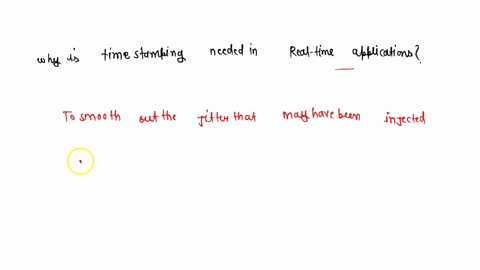 why is time stamping needed in Real-time applications?
To smooth out the jitter that may have been injected